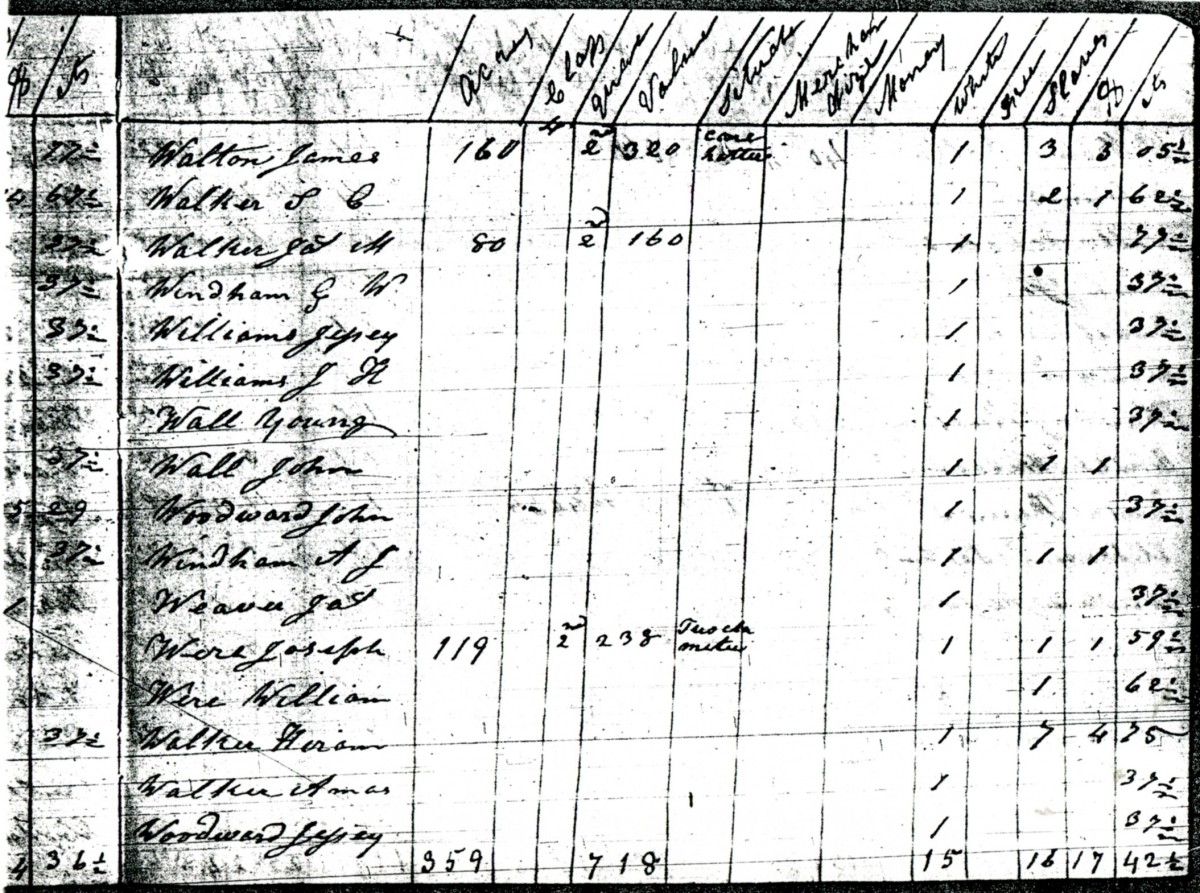 $ Acres Class Value Merchan Money White Free Slaves $ cts
Walton James 160 2nd 320 1 3 3 05½
67½ Walker S C 1 2 1 62½
Walker Jas M 80 2nd 160 1 77½
37½ Windham G W 1 37½
37½ Williams Jessey 1 37½
37½ Williams J H 1 37½
Wall Young 1 37½
37½ Wall John 1 1 1
5 29 Woodward John 1 37½
37½ Windham A J 1 1 1
Weaver Jas 1 37½
Were Joseph 119 2nd 238 1 1 1 59½
Were William 1 62½
37½ Walker Hiram 1 7 4 75
Walker Amos 1 37½
Woodward Jessey 1 37½
4 36½ 359 718 15 16 17 42½